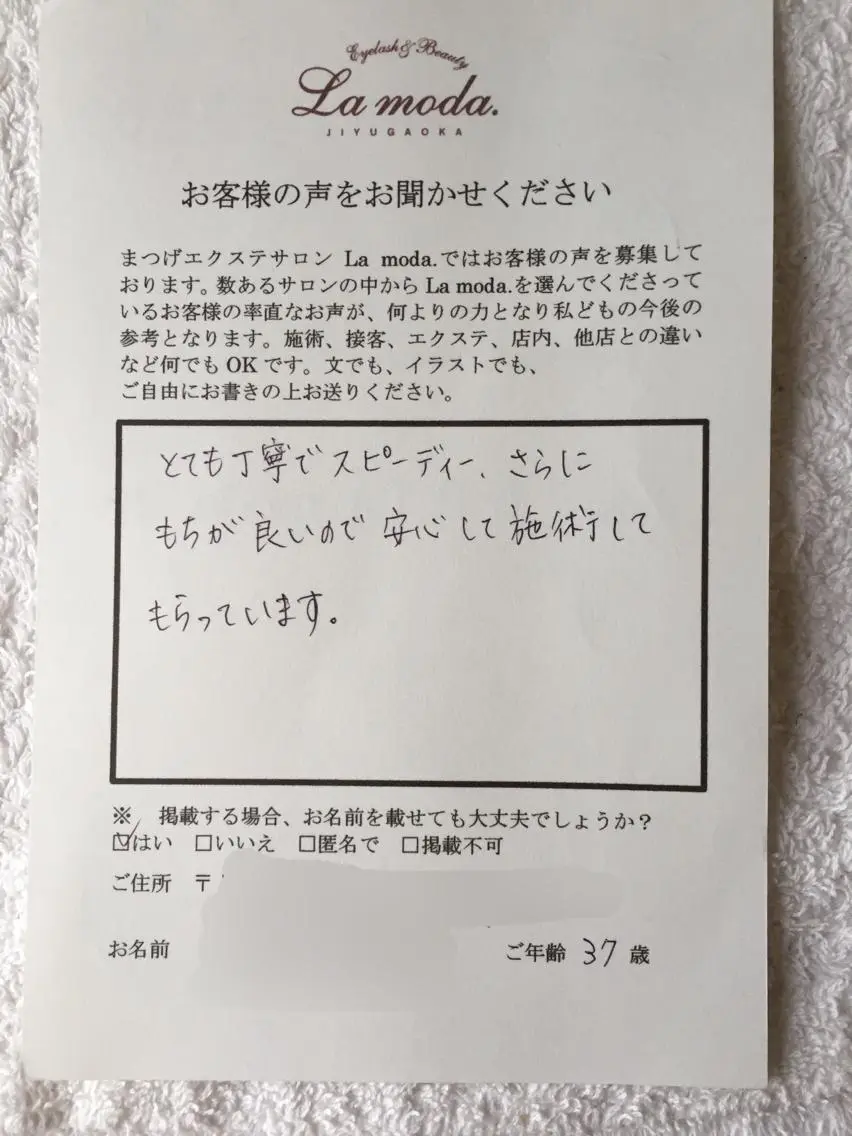 Eyelash & Beauty
La moda.
JIYUGAOKA
お客様の声をお聞かせください
まつげエクステサロン La moda.ではお客様の声を募集して
おります。数あるサロンの中から La moda.を選んでくださって
いるお客様の率直なお声が、何よりの力となり私どもの今後の
参考となります。施術、接客、エクステ、店内、他店との違い
など何でも OK です。文でも、イラストでも、
ご自由にお書きの上お送りください。
とても丁寧でスピーディー、さらに
もちが良いので安心して施術して
もらっています。
※ 掲載する場合、お名前を載せても大丈夫でしょうか？
☑はい □いいえ □匿名で □掲載不可
ご住所 〒
お名前 ご年齢 37 歳